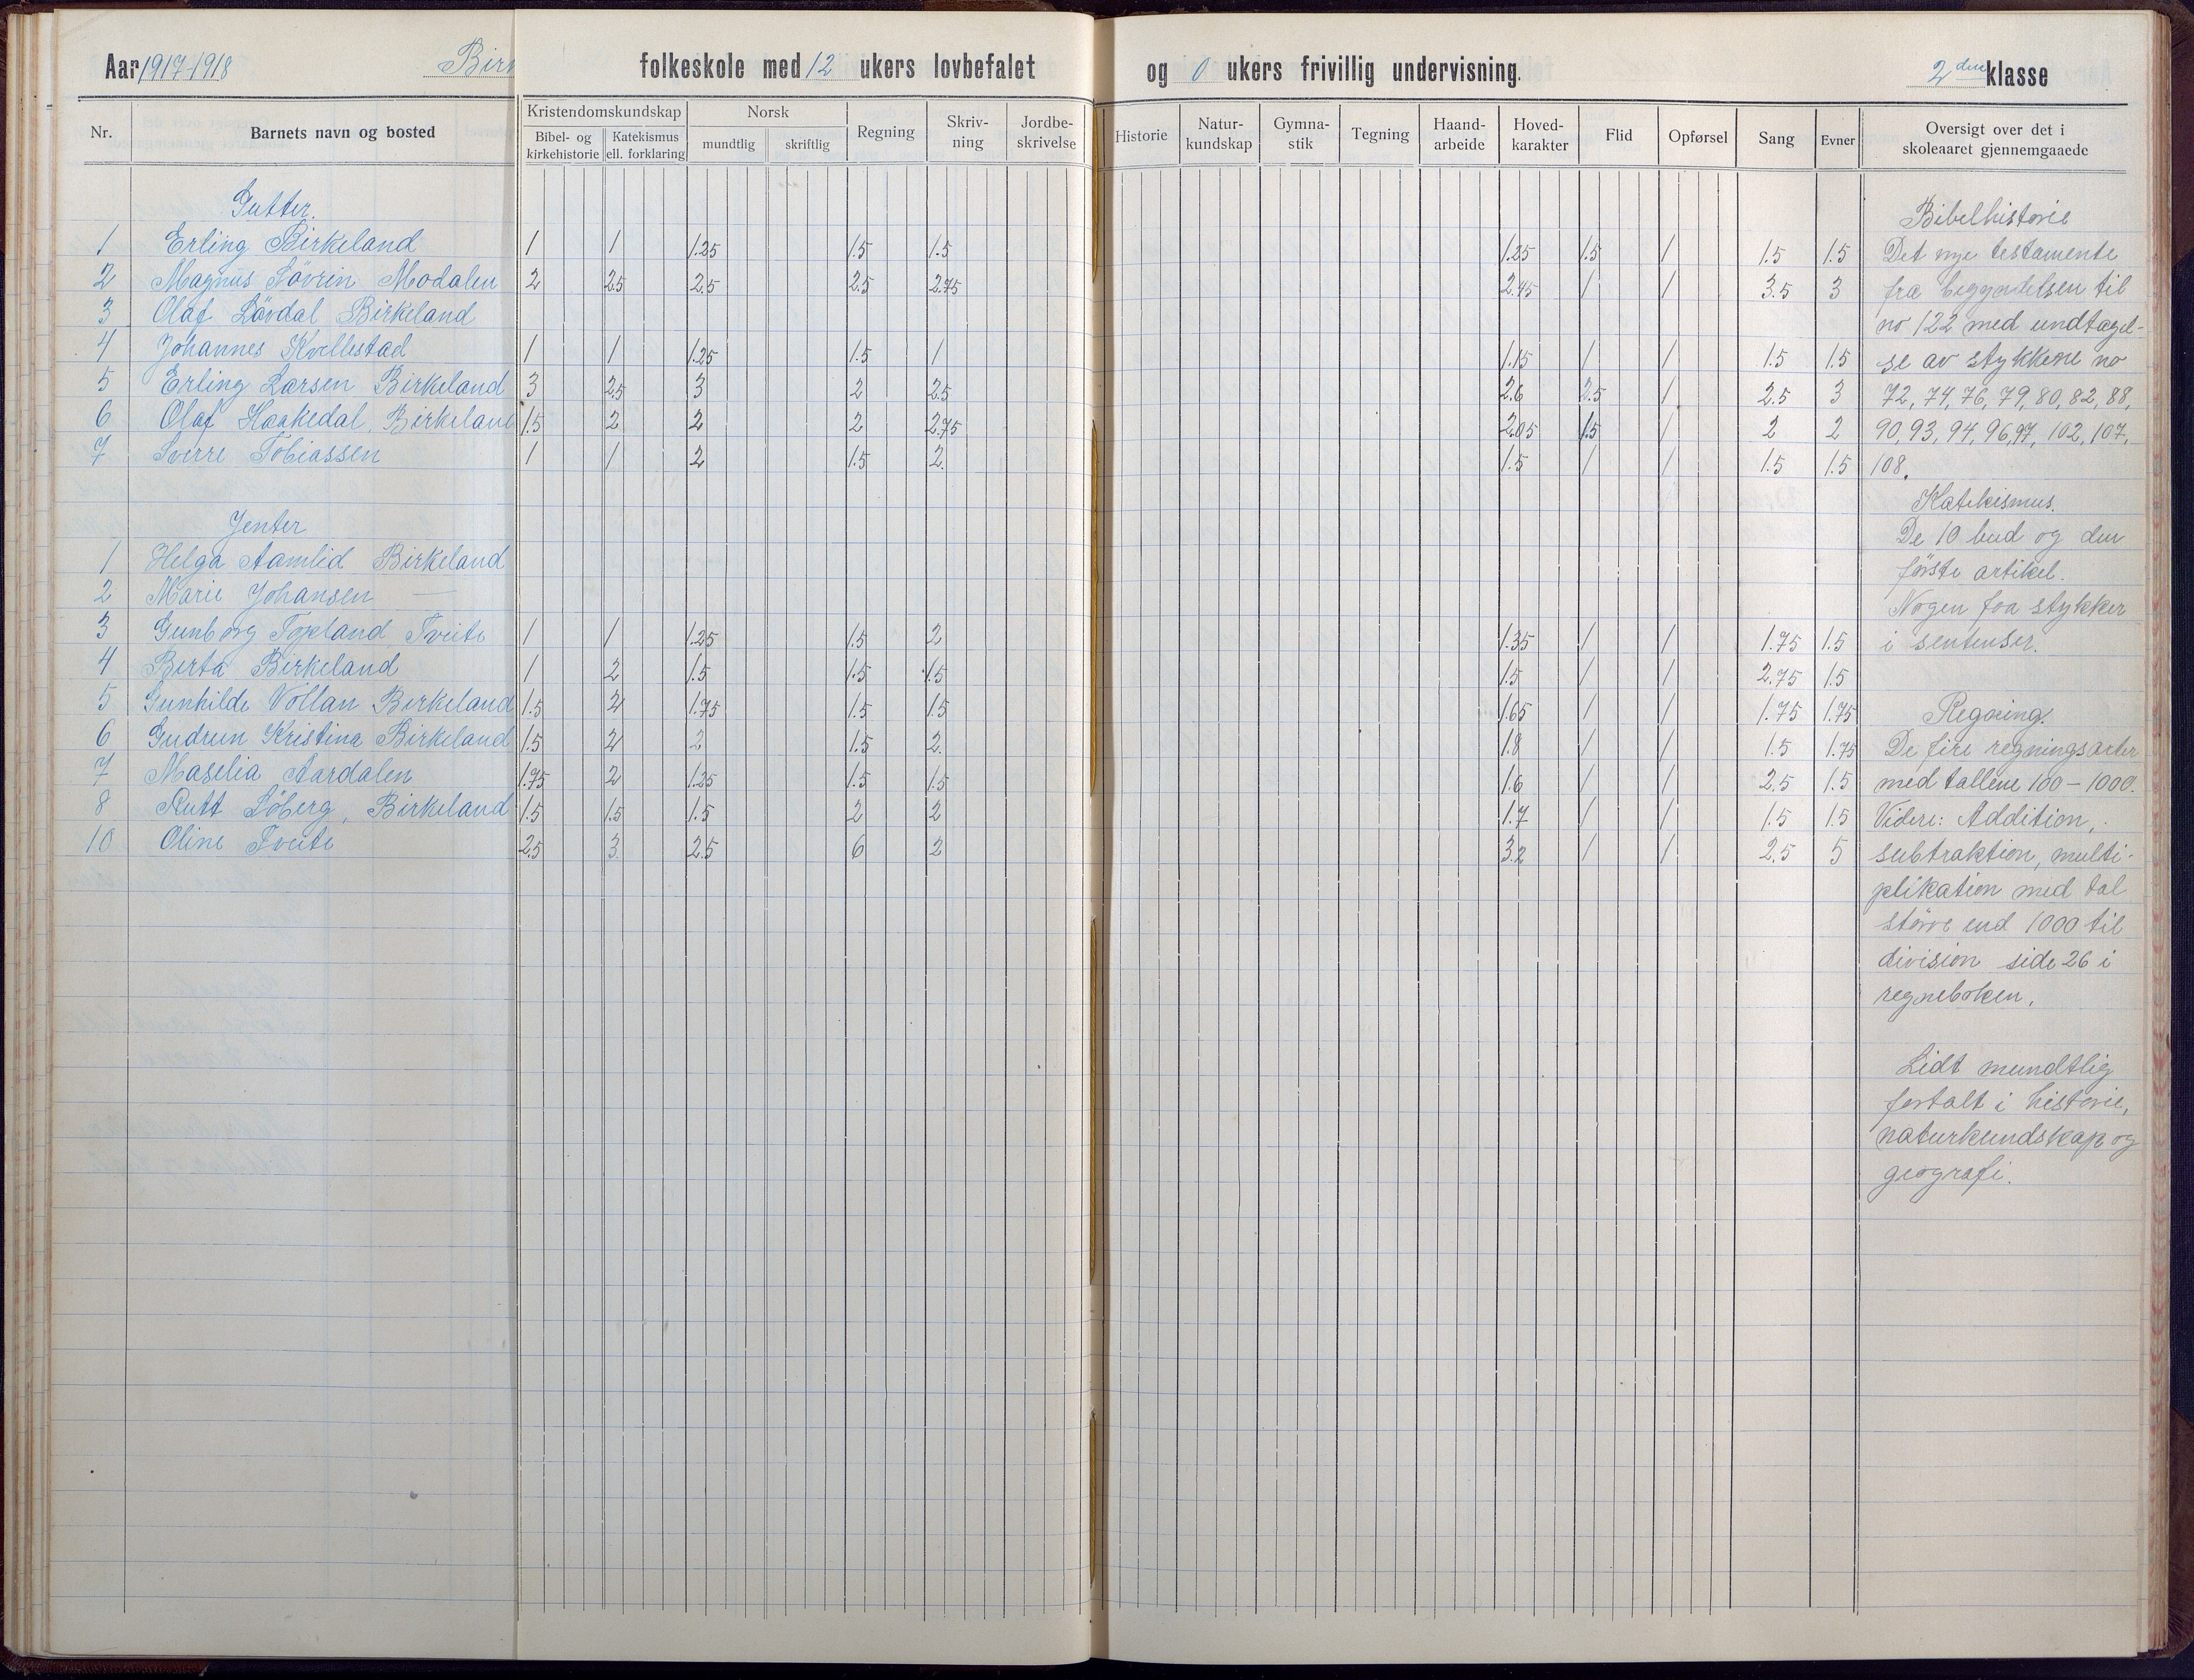 Aar 1917-1918 Birk folkeskole med 12 ukers lovbefalet og 0 ukers frivillig undervisning. 2den klasse
Nr. Barnets navn og bosted Kristendomskundskap Bibel- og kirkehistorie Katekismus ell. forklaring Norsk mundtlig skriftlig Regning Skriv-ning Jordbe-skrivelse Historie Natur-kundskap Gymna-stik Tegning Haand-arbeide Hoved-karakter Flid Opførsel Sang Evner Oversigt over det i skoleaaret gjennemgaaede
Gutter.
1 Erling Birkeland 1 1 1.25 1.5 1.5 1.25 1.5 1 1.5 1.5
2 Magnus Sövrin Modalen 2 2.5 2.5 2.5 2.75 2.45 1 1 3.5 3
3 Olaf Lövdal Birkeland
4 Johannes Kvellestad 1 1 1.25 1.5 1 1.15 1 1 1.5 1.5
5 Erling Larsen Birkeland 3 2.5 3 2 2.5 2.6 2.5 1 2.5 3
6 Olaf Haakedal, Birkeland 1.5 2 2 2 2.75 2.05 1.5 1 2 2
7 Sverre Tobiassen 1 1 2 1.5 2. 1.5 1 1 1.5 1.5
Jenter
1 Helga Aamlid Birkeland
2 Marie Johansen —
3 Gunborg Topland, Tveite 1 1 1.25 1.5 2 1.35 1 1 1.75 1.5
4 Berta Birkeland 1 2 1.5 1.5 1.5 1.5 1 1 2.75 1.5
5 Gunhilde Vollan Birkeland 1.5 2 1.75 1.5 1.5 1.65 1 1 1.75 1.75
6 Gudrun Kristina Birkeland 1.5 2 2 1.5 2. 1.8 1 1 1.5 1.75
7 Maselia Aardalen 1.75 2 1.25 1.5 1.5 1.6 1 1 2.5 1.5
8 Rutt Söberg, Birkeland 1.5 1.5 1.5 2 2 1.7 1 1 1.5 1.5
10 Oline Tveite 2.5 3. 2.5 6 2 3.2 1 1 2.5 5
Bibelhistorie
Det nye testamente
fra begyndelsen til
no 122 med undtagel-
se av stykkene no
72, 74, 76, 79, 80, 82, 88,
90, 93, 94, 96, 97, 102, 107,
108.
Katekismus.
De 10 bud og den
förste artikel.
Nogen faa stykker
i sentenser.
Regning.
De fire regningsarter
med tallene 100 - 1000.
Videre: Addition,
subtraktion, multi-
plikation med tal
större end 1000 til
division side 26 i
regneboken.
Lidt mundtlig
fortalt i historie,
naturkundskap og
geografi.